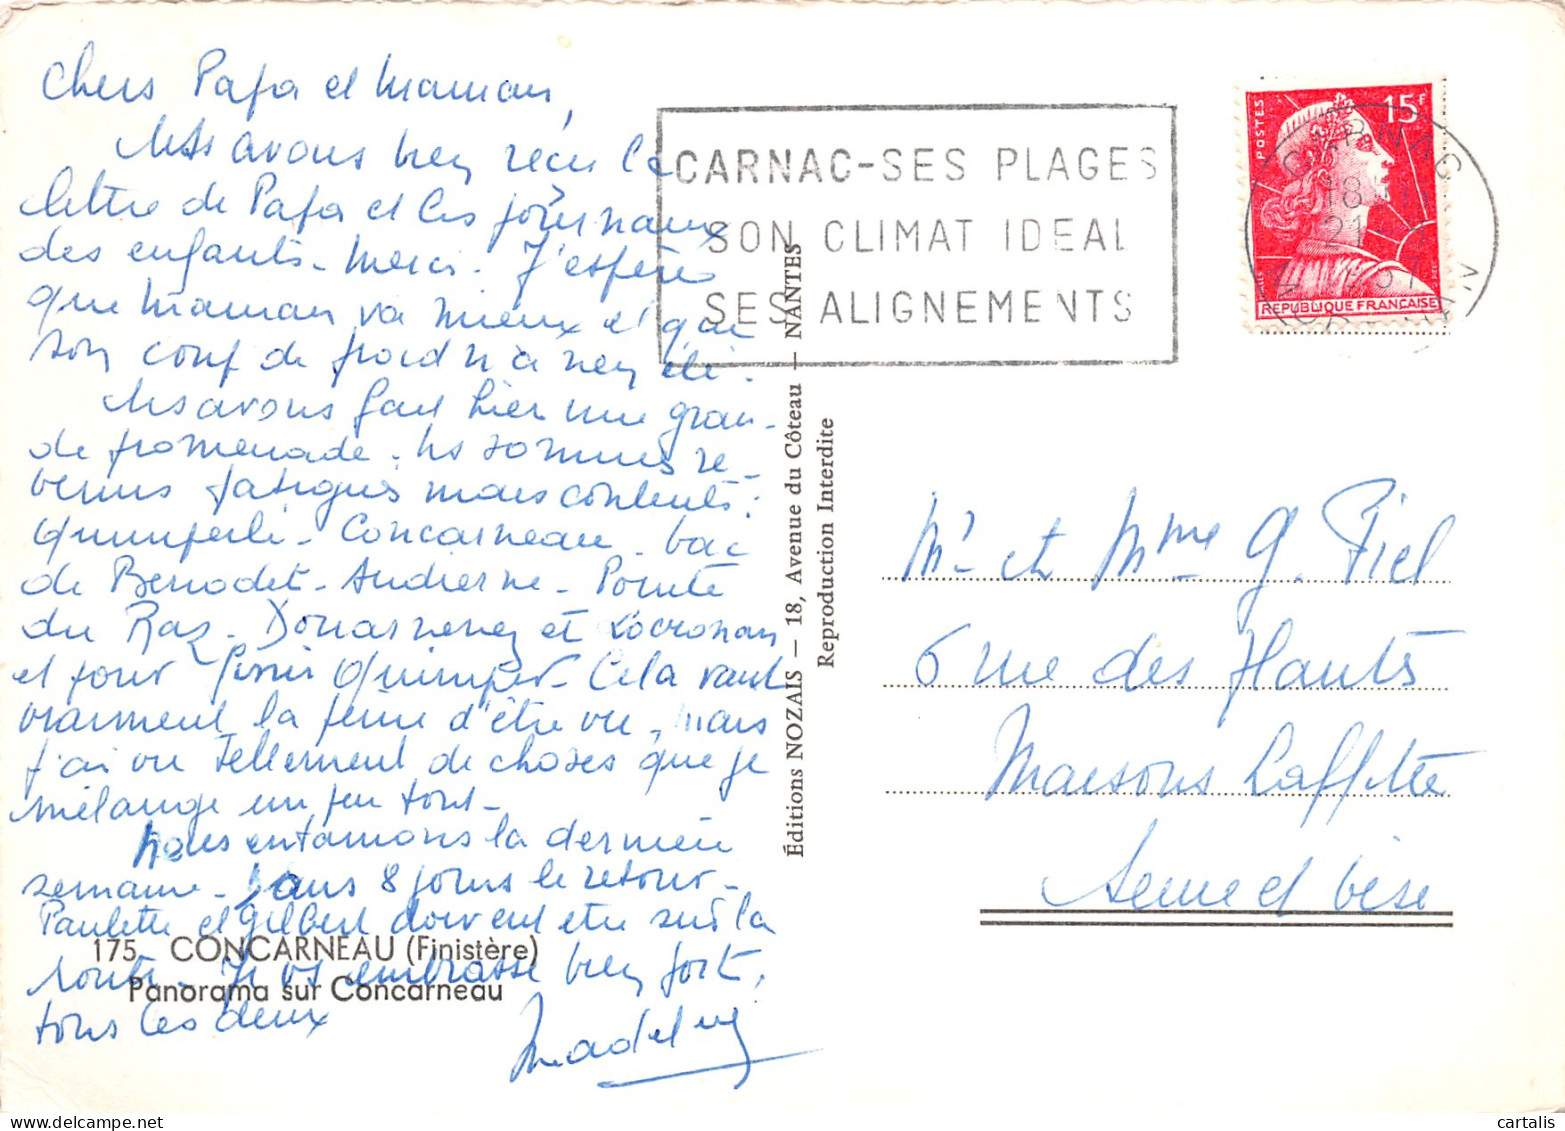 Chers Papa et Maman,
Ns avons bien reçu la
lettre de Papa et les journaux
des enfants - Merci. J'espère
que Maman va mieux et que
son coup de froid n'a rien été.
Ns avons fait hier une gran-
de promenade. Ns sommes re-
venus fatigués mais contents :
Quimperlé - Concarneau - bac
de Benodet - Audierne - Pointe
du Raz - Douarnenez et Locronan
et pour finir Quimper - Cela vaut
vraiment la peine d'être vu, mais
j'ai vu tellement de choses que je
mélange un peu tout -
Nous entamons la dernière
semaine - Dans 8 jours le retour -
Paulette et Gilbert doivent être sur la
route - Je vs embrasse bien fort,
tous les deux
Madeleine
175 CONCARNEAU (Finistère)
Panorama sur Concarneau
Éditions NOZAIS — 18, Avenue du Côteau — NANTES
Reproduction Interdite
CARNAC-SES PLAGES
SON CLIMAT IDEAL
SES ALIGNEMENTS
POSTES
15F
REPUBLIQUE FRANÇAISE
CARNAC
18
21
Mr et Mme G. Piel
6 rue des Hauts
Maisons Laffitte
Seine et Oise
cartalis